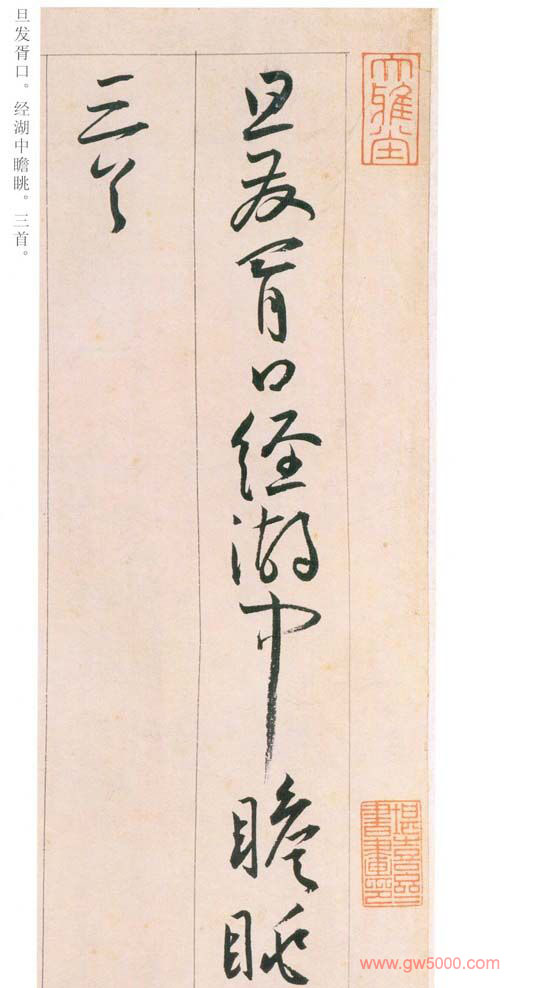 旦發胥口經湖中瞻眺
三首
旦发胥口。经湖中瞻眺。三首。
www.gw5000.com